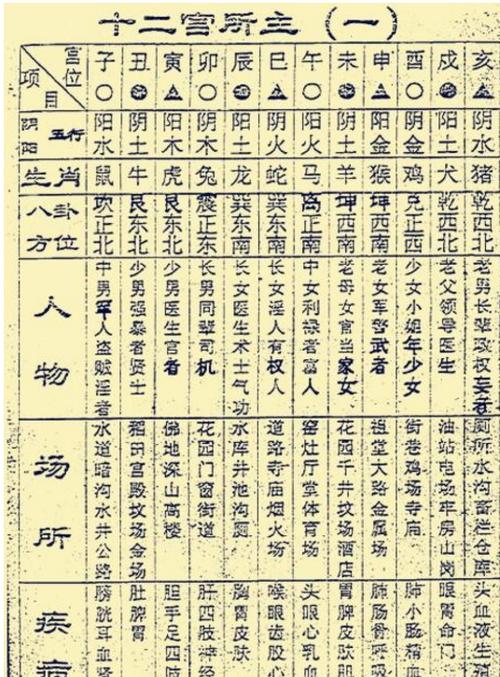 十二宫所主（一）
宫位 项目 子 丑 寅 卯 辰 巳 午 未 申 酉 戌 亥
阴阳五行 阳水 阴土 阳木 阴木 阳土 阴火 阳火 阴土 阳金 阴金 阳土 阴水
生肖 鼠 牛 虎 兔 龙 蛇 马 羊 猴 鸡 犬 猪
八卦方位 坎正北 艮东北 艮东北 震正东 巽东南 巽东南 离正南 坤西南 坤西南 兑正西 乾西北 乾西北
人物
中男军人盗贼淫者
少男强暴者贤士
少男医生官者
长男同辈司机
长女医生术士气功
长女淫人有权人
中女利禄者富人
老母女官当家女
老女军警武者
少女小姐年少女
老父领导医生
老男长辈
场所
水道暗沟水井公路
稻田宫殿坟场会场
佛地深山高楼
花园门窗街道
水库井池沟厕
道路寺庙烟火场
窑灶厅堂体育场
花园千井坟场酒店
祖堂大路金属场
街巷鸡场寺庙
油站电场牢房山岗
厕所水沟畜栏仓库
疾病
膀胱耳血肾
肚脾胃
胆手足四肢
肝四肢神经
胸胃皮肤
喉眼齿股心
头眼心乳血
胃脾皮肤胆
肺肠骨呼吸
肺小肠精血
眼胃命门
头血液生殖